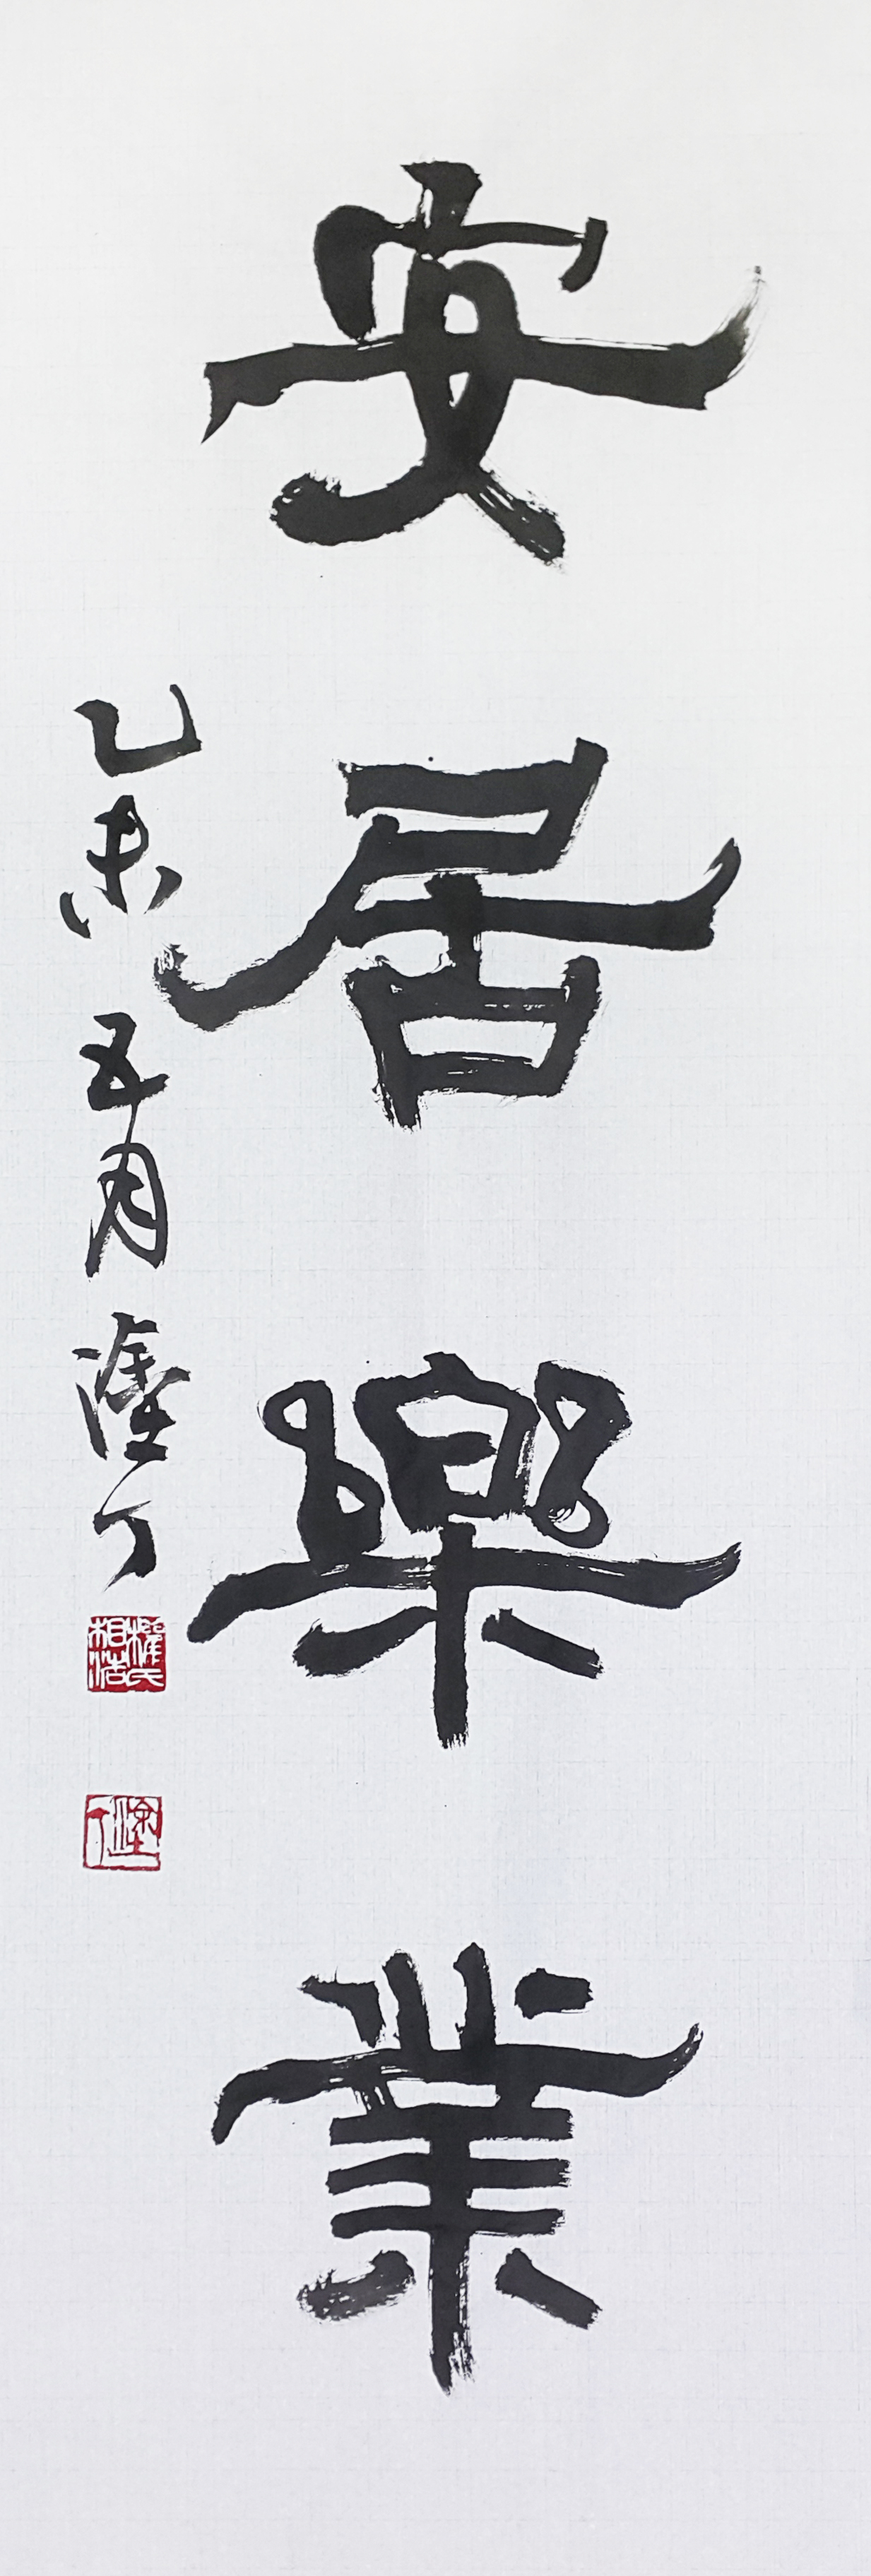 安居樂業
乙未五月塗丁
權氏相浩
塗丁